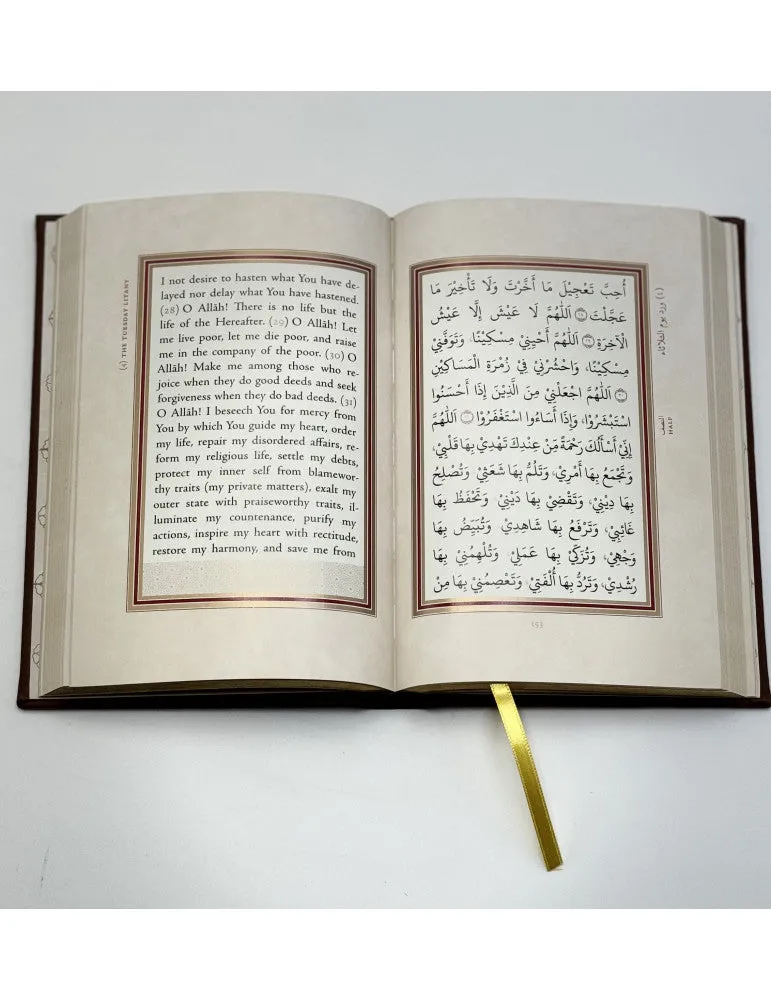 (4) THE TUESDAY LITANY
I not desire to hasten what You have de-
layed nor delay what You have hastened.
(28) O Allāh! There is no life but the
life of the Hereafter. (29) O Allāh! Let
me live poor, let me die poor, and raise
me in the company of the poor. (30) O
Allāh! Make me among those who re-
joice when they do good deeds and seek
forgiveness when they do bad deeds. (31)
O Allāh! I beseech You for mercy from
You by which You guide my heart, order
my life, repair my disordered affairs, re-
form my religious life, settle my debts,
protect my inner self from blamewor-
thy traits (my private matters), exalt my
outer state with praiseworthy traits, il-
luminate my countenance, purify my
actions, inspire my heart with rectitude,
restore my harmony, and save me from
أُحِبَّ تَعْجِيْلَ مَا أَخَّرْتَ وَلَا تَأْخِيْرَ مَا
عَجَّلْتَ ۝ اَللّٰهُمَّ لَا عَيْشَ إِلَّا عَيْشُ
الْآخِرَةِ ۝ اَللّٰهُمَّ أَحْيِنِيْ مِسْكِيْنًا، وَتَوَفَّنِيْ
مِسْكِيْنًا، وَاحْشُرْنِيْ فِيْ زُمْرَةِ الْمَسَاكِيْنِ
۝ اَللّٰهُمَّ اجْعَلْنِيْ مِنَ الَّذِيْنَ إِذَا أَحْسَنُوا
اسْتَبْشَرُوْا، وَإِذَا أَسَاءُوا اسْتَغْفَرُوْا ۝ اَللّٰهُمَّ
إِنِّيْ أَسْأَلُكَ رَحْمَةً مِّنْ عِنْدِكَ تَهْدِيْ بِهَا قَلْبِيْ،
وَتَجْمَعُ بِهَا أَمْرِيْ، وَتَلُمُّ بِهَا شَعَثِيْ، وَتُصْلِحُ
بِهَا دِيْنِيْ، وَتَقْضِيْ بِهَا دَيْنِيْ، وَتَحْفَظُ بِهَا
غَائِبِيْ، وَتَرْفَعُ بِهَا شَاهِدِيْ، وَتُبَيِّضُ بِهَا
وَجْهِيْ، وَتُزَكِّيْ بِهَا عَمَلِيْ، وَتُلْهِمُنِيْ بِهَا
رُشْدِيْ، وَتَرُدُّ بِهَا أُلْفَتِيْ، وَتَعْصِمُنِيْ بِهَا مِنْ
(٤) ورد يوم الثلاثاء
النصف
HALF
153